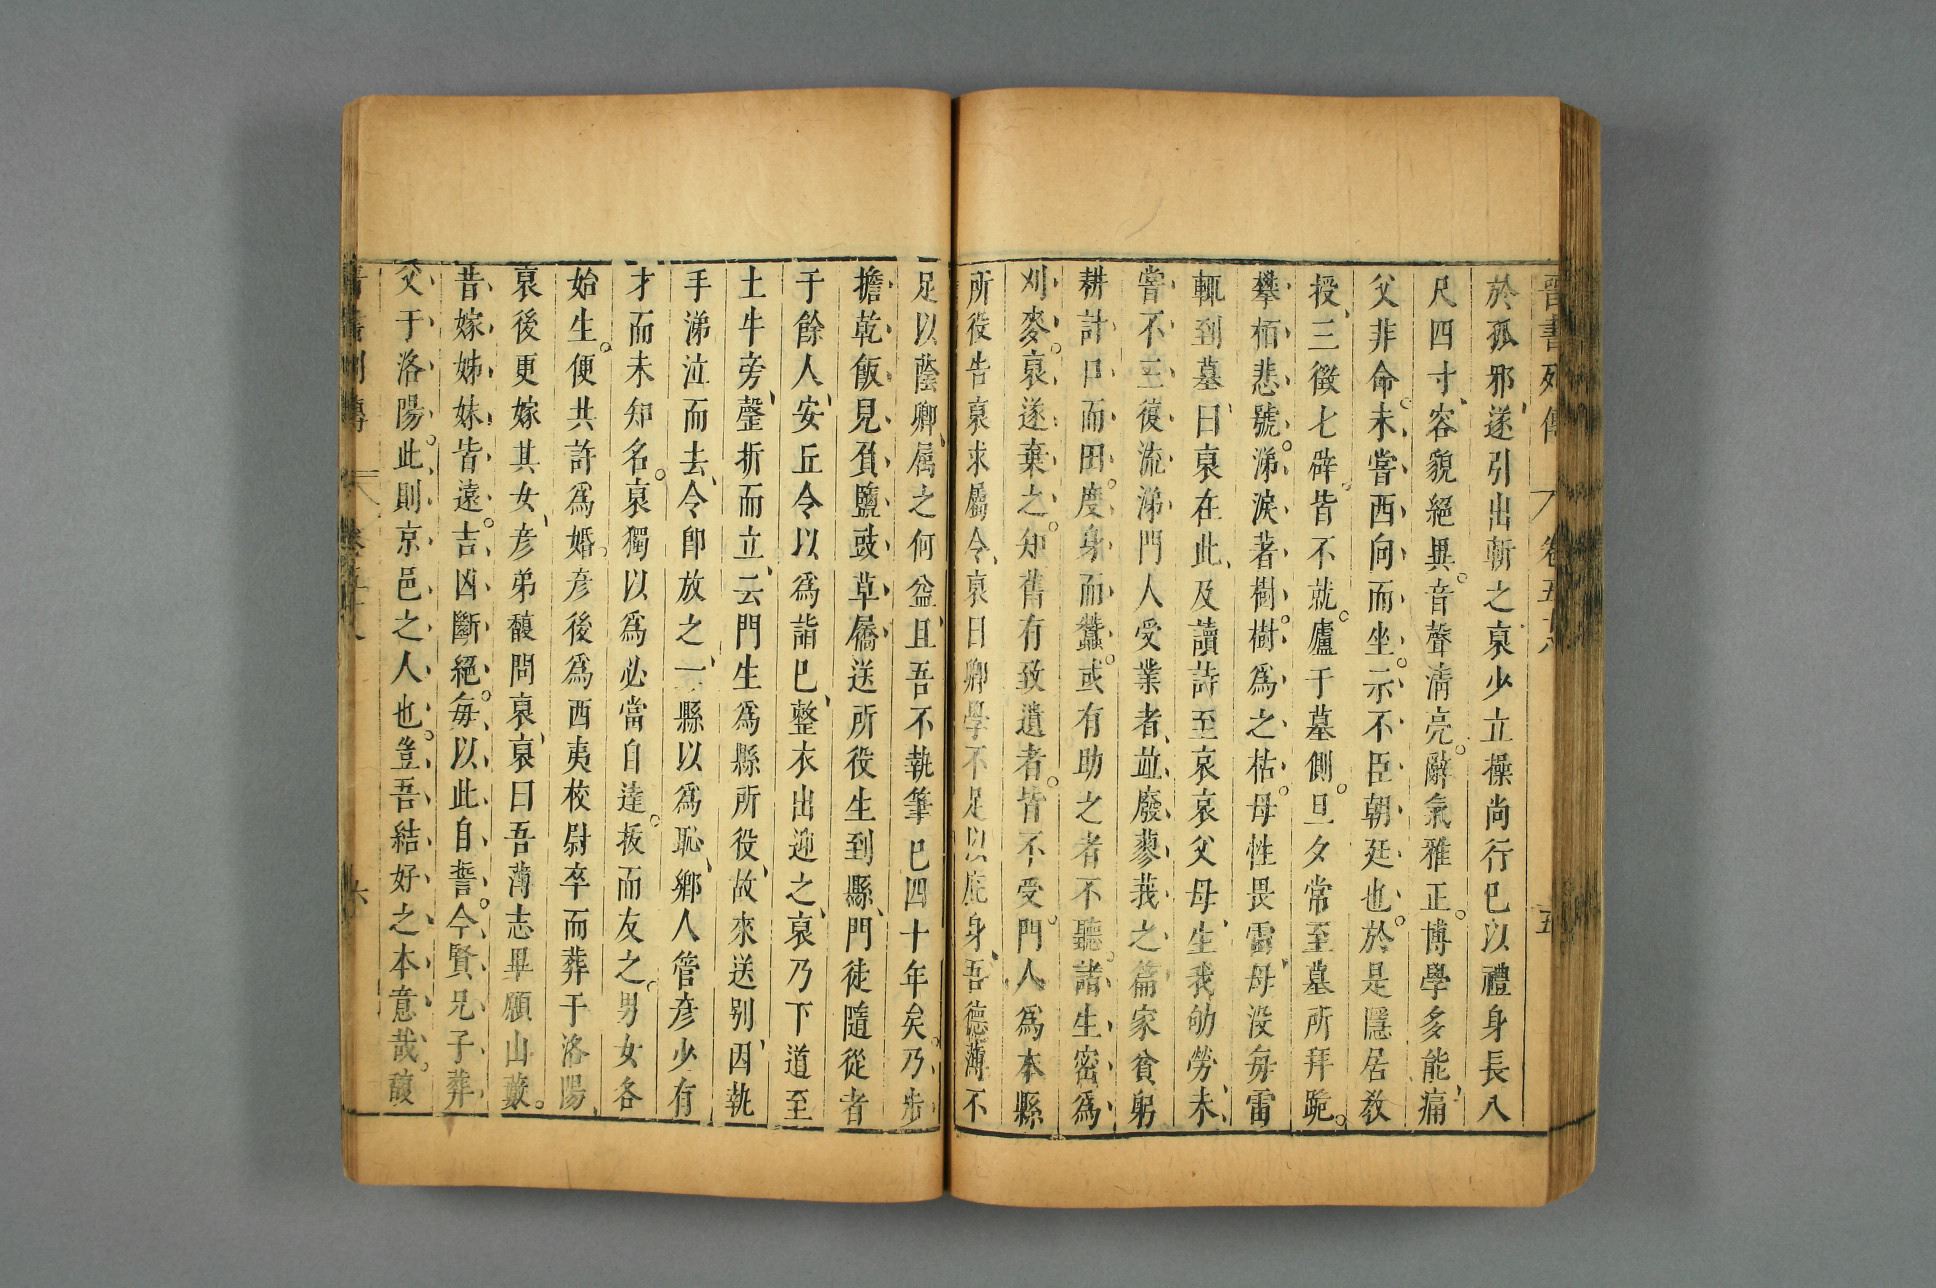 晉書列傳 卷五十八 五
於孤邪遂引出斬之裒少立操尚行已以禮身長八
尺四寸容貌絕異音聲清亮辭氣雅正博學多能痛
父非命未嘗西向而坐示不臣朝廷也於是隱居教
授三徵七辟皆不就廬于墓側旦夕常至墓所拜跪
攀栢悲號涕淚著樹樹爲之枯母性畏雷母没每雷
輒到墓曰裒在此及讀詩至哀哀父母生我劬勞未
嘗不三復流涕門人受業者並廢蓼莪之篇家貧躬
耕計口而田度身而蠶或有助之者不聽諸生密爲
刈麥裒遂棄之知舊有致遺者皆不受門人爲本縣
所役告裒求屬令裒曰卿學不足以庇身吾德薄不
足以蔭卿属之何益且吾不執筆已四十年矣乃步
擔乾飯兒負鹽豉草屩送所役生到縣門徒隨從者
千餘人安丘令以爲詣已整衣出迎之裒乃下道至
土牛旁磬折而立云門生爲縣所役故來送别因執
手涕泣而去令卽放之一縣以爲恥鄉人管彦少有
才而未知名裒獨以爲必當自達拔而友之男女各
始生便共許爲婚彦後爲西夷校尉卒而葬于洛陽
裒後更嫁其女彦弟馥問裒裒曰吾薄志畢願山藪
昔嫁姊妹皆遠吉凶斷絕每以此自誓今賢兄子葬
父于洛陽此則京邑之人也豈吾結好之本意哉馥
晉書列傳 卷五十八 六